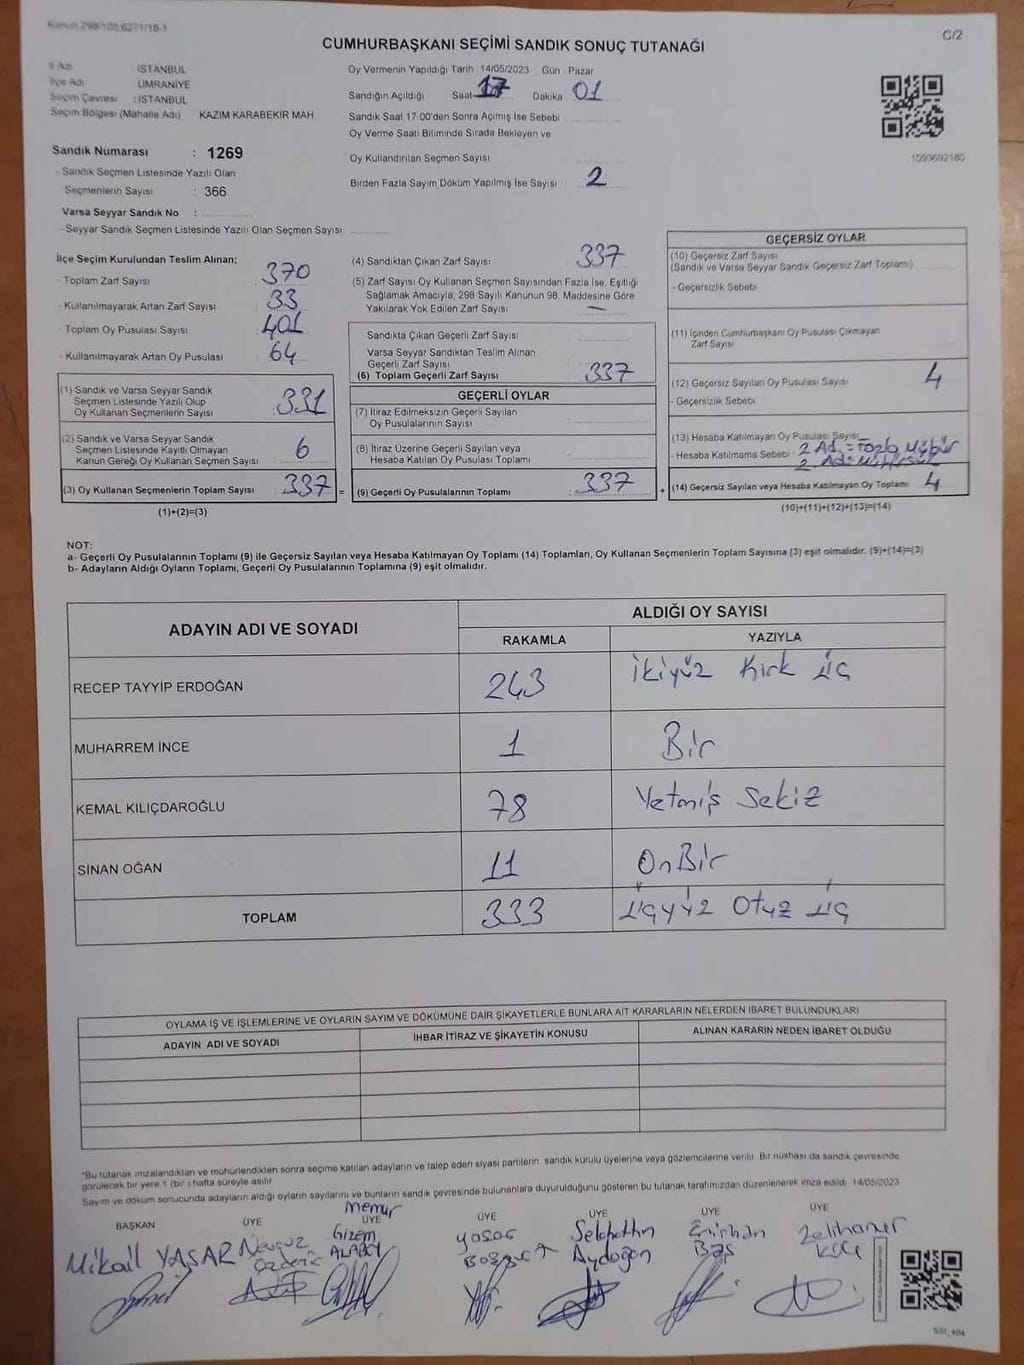 Kanun 298/105/6271/18-1
C/2
CUMHURBAŞKANI SEÇİMİ SANDIK SONUÇ TUTANAĞI
İl Adı : İSTANBUL
İlçe Adı : ÜMRANİYE
Seçim Çevresi : İSTANBUL
Seçim Bölgesi (Mahalle Adı) KAZIM KARABEKİR MAH
Sandık Numarası : 1269
- Sandık Seçmen Listesinde Yazılı Olan
Seçmenlerin Sayısı : 366
Varsa Seyyar Sandık No :
- Seyyar Sandık Seçmen Listesinde Yazılı Olan Seçmen Sayısı:
Oy Vermenin Yapıldığı Tarih : 14/05/2023 Gün Pazar
Sandığın Açıldığı Saat 17 Dakika 01
Sandık Saat 17:00'den Sonra Açımış İse Sebebi
Oy Verme Saati Bitiminde Sırada Bekleyen ve
Oy Kullandırılan Seçmen Sayısı
Birden Fazla Sayım Döküm Yapılmış İse Sayısı : 2
1093692160
İlçe Seçim Kurulundan Teslim Alınan;
- Toplam Zarf Sayısı : 370
- Kullanılmayarak Artan Zarf Sayısı : 33
- Toplam Oy Pusulası Sayısı : 401
- Kullanılmayarak Artan Oy Pusulası : 64
(1) Sandık ve Varsa Seyyar Sandık
Seçmen Listesinde Yazılı Olup
Oy Kullanan Seçmenlerin Sayısı : 331
(2) Sandık ve Varsa Seyyar Sandık
Seçmen Listesinde Kayıtlı Olmayan
Kanun Gereği Oy Kullanan Seçmen Sayısı : 6
(3) Oy Kullanan Seçmenlerin Toplam Sayısı : 337 =
(1)+(2)=(3)
(4) Sandıktan Çıkan Zarf Sayısı : 337
(5) Zarf Sayısı Oy Kullanan Seçmen Sayısından Fazla İse, Eşitliği
Sağlamak Amacıyla; 298 Sayılı Kanunun 98. Maddesine Göre
Yakılarak Yok Edilen Zarf Sayısı : —
Sandıkta Çıkan Geçerli Zarf Sayısı :
Varsa Seyyar Sandıktan Teslim Alınan
Geçerli Zarf Sayısı :
(6) Toplam Geçerli Zarf Sayısı : 337
GEÇERLİ OYLAR
(7) İtiraz Edilmeksizin Geçerli Sayılan
Oy Pusulalarının Sayısı :
(8) İtiraz Üzerine Geçerli Sayılan veya
Hesaba Katılan Oy Pusulası Toplamı :
(9) Geçerli Oy Pusulalarının Toplamı : 337 +
GEÇERSİZ OYLAR
(10) Geçersiz Zarf Sayısı
(Sandık ve Varsa Seyyar Sandık Geçersiz Zarf Toplamı)
- Geçersizlik Sebebi
(11) İçinden Cumhurbaşkanı Oy Pusulası Çıkmayan
Zarf Sayısı
(12) Geçersiz Sayılan Oy Pusulası Sayısı 4
- Geçersizlik Sebebi
(13) Hesaba Katılmayan Oy Pusulası Sayısı
- Hesaba Katılmama Sebebi : 2 Ad. = Fazla Mühür
2 Ad=
(14) Geçersiz Sayılan veya Hesaba Katılmayan Oy Toplamı 4
(10)+(11)+(12)+(13)=(14)
NOT:
a- Geçerli Oy Pusulalarının Toplamı (9) ile Geçersiz Sayılan veya Hesaba Katılmayan Oy Toplamı (14) Toplamları, Oy Kullanan Seçmenlerin Toplam Sayısına (3) eşit olmalıdır. (9)+(14)=(3)
b- Adayların Aldığı Oyların Toplamı, Geçerli Oy Pusulalarının Toplamına (9) eşit olmalıdır.
ADAYIN ADI VE SOYADI
ALDIĞI OY SAYISI
RAKAMLA YAZIYLA
RECEP TAYYİP ERDOĞAN 243 İkiyüz Kırk üç
MUHARREM İNCE 1 Bir
KEMAL KILIÇDAROĞLU 78 Yetmiş Sekiz
SİNAN OĞAN 11 OnBir
TOPLAM 333 üçyüz Otuz üç
OYLAMA İŞ VE İŞLEMLERİNE VE OYLARIN SAYIM VE DÖKÜMÜNE DAİR ŞİKAYETLERLE BUNLARA AİT KARARLARIN NELERDEN İBARET BULUNDUKLARI
ADAYIN ADI VE SOYADI İHBAR İTİRAZ VE ŞİKAYETİN KONUSU ALINAN KARARIN NEDEN İBARET OLDUĞU
*Bu tutanak imzalandıktan ve mühürlendikten sonra seçime katılan adayların ve talep eden siyasi partilerin sandık kurulu üyelerine veya gözlemcilerine verilir. Bir nüshası da sandık çevresinde
görülecek bir yere 1 (bir) hafta süreyle asılır
Sayım ve döküm sonucunda adayların aldığı oyların sayılarını ve bunların sandık çevresinde bulunanlara duyurulduğunu gösteren bu tutanak tarafımızdan düzenlenerek imza edildi. 14/05/2023
Memur
BAŞKAN ÜYE ÜYE ÜYE ÜYE ÜYE ÜYE
Mikail YAŞAR
Gizem
Yaşar
Selahattin Aydoğan
Emirhan Baş
Zelihanur KOÇ
SSI_404